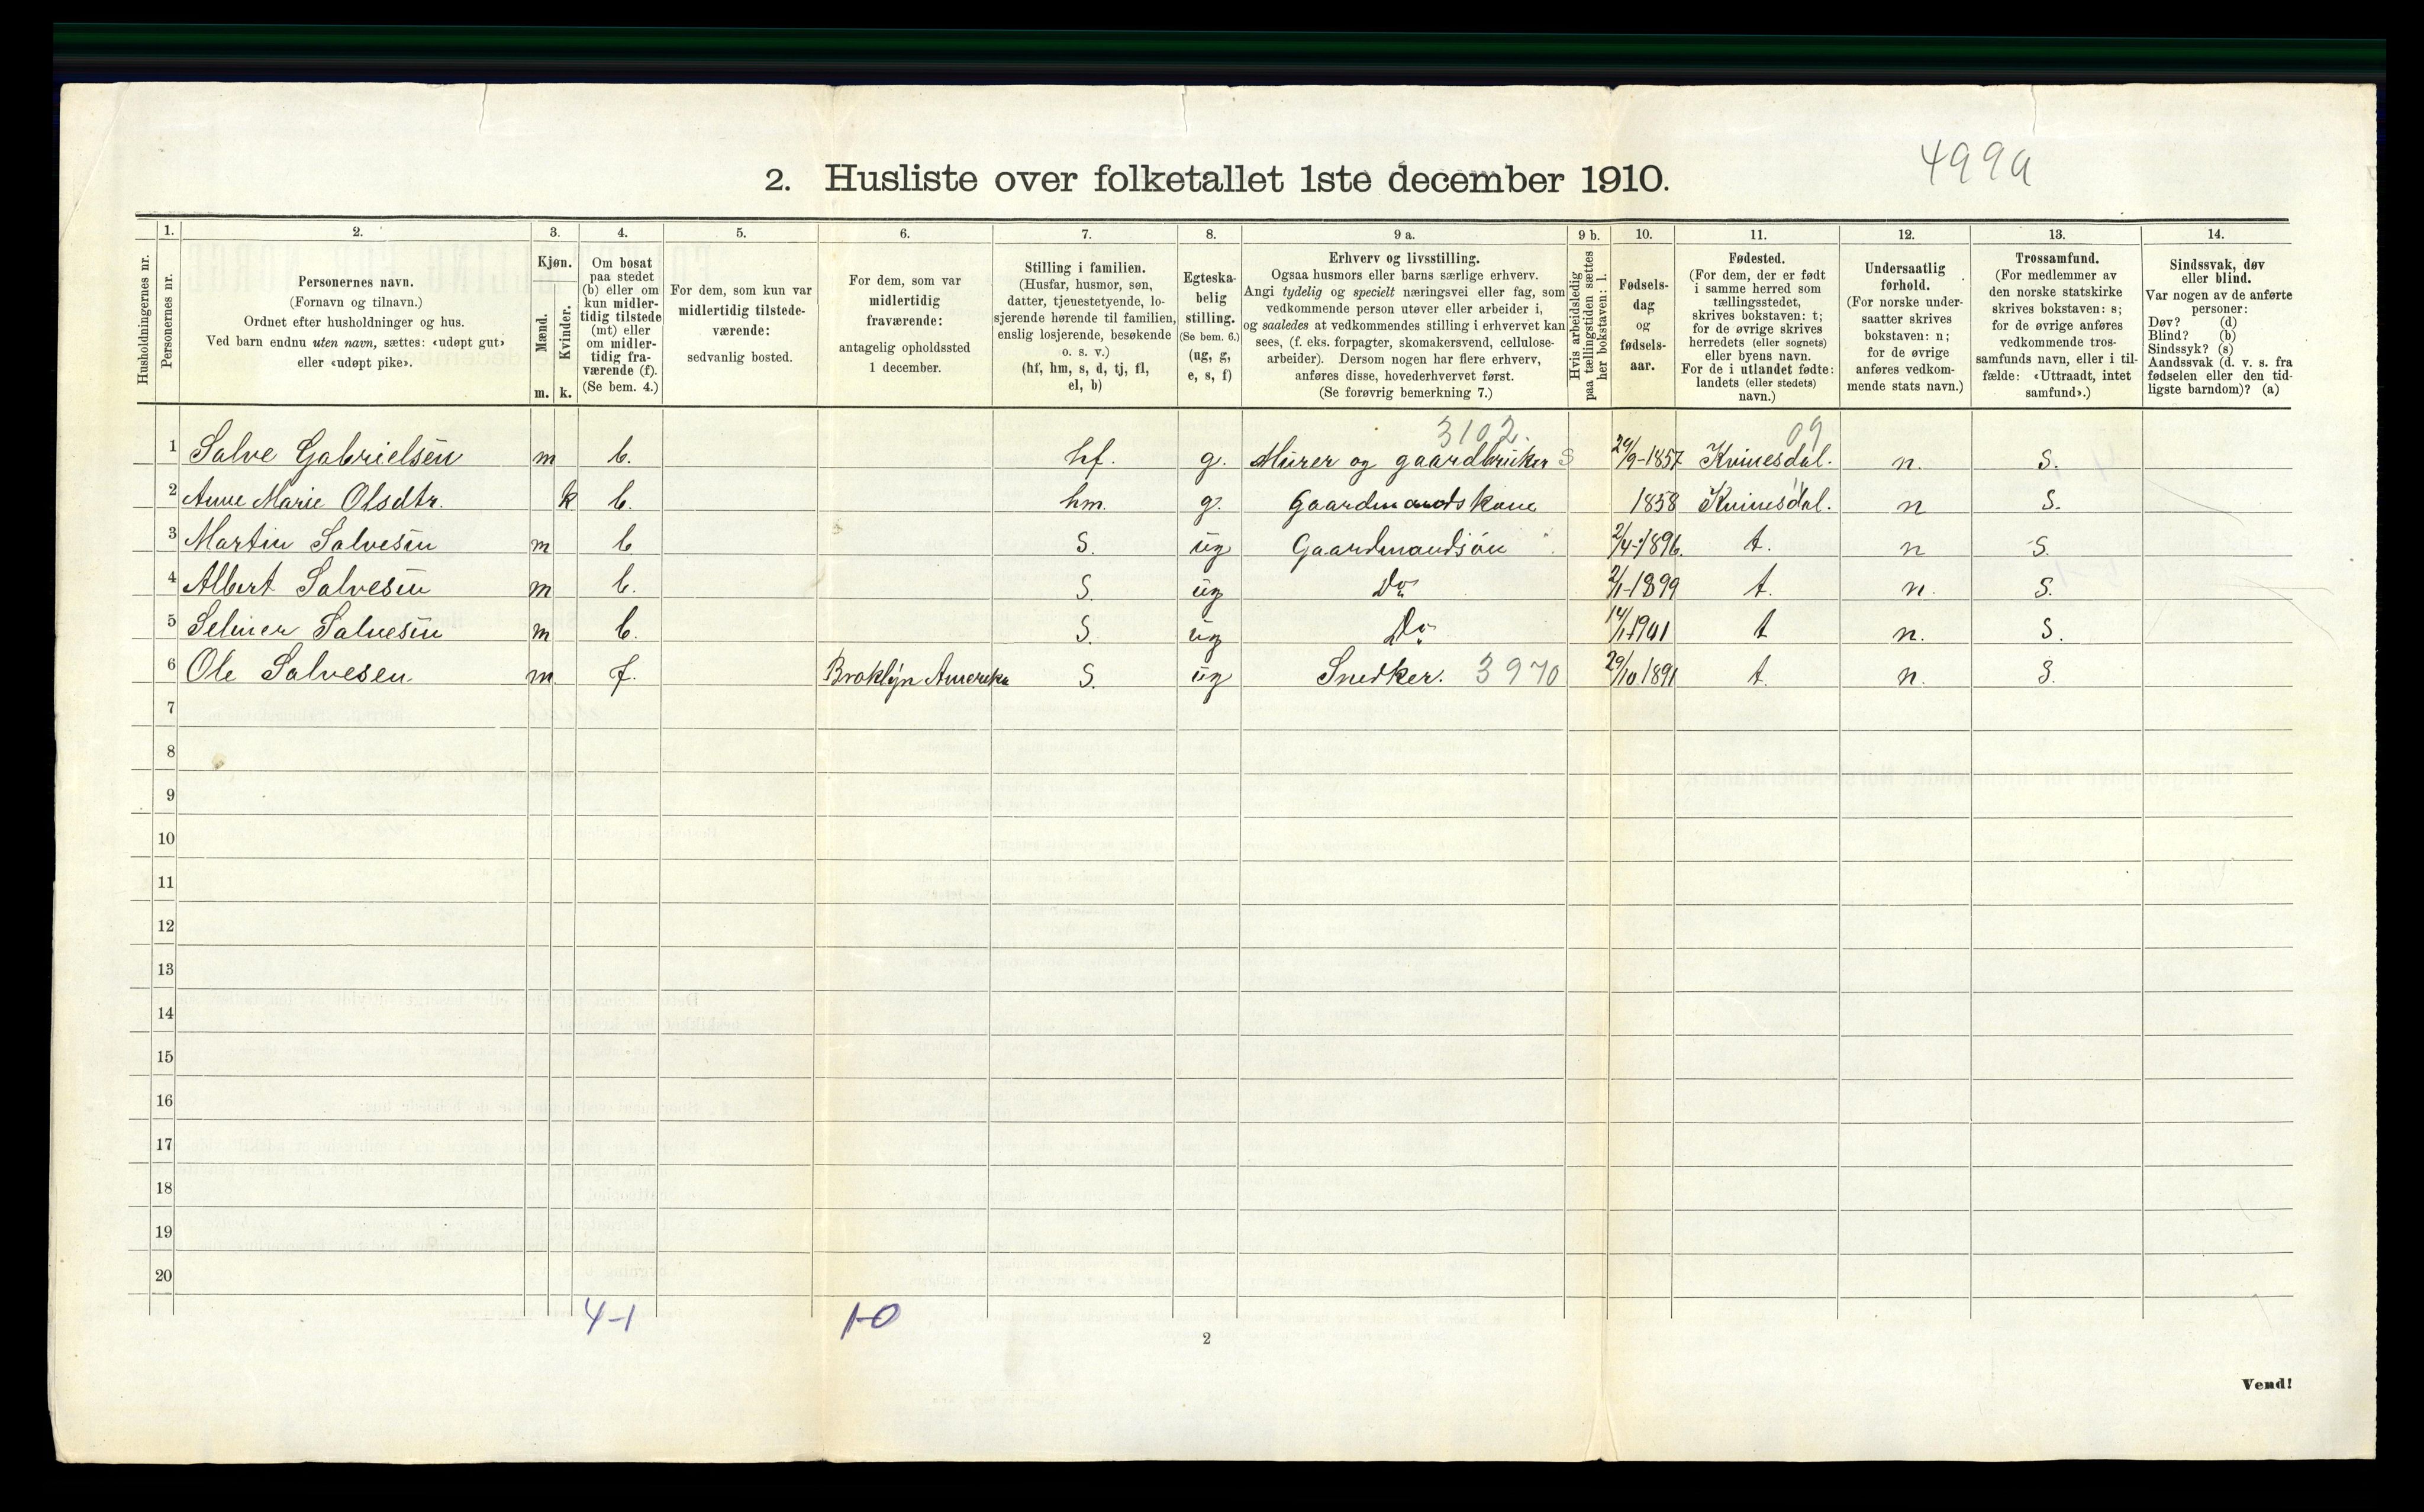 499a
2. Husliste over folketallet 1ste december 1910.
Husholdningernes nr.
1. Personernes nr.
2. Personernes navn. (Fornavn og tilnavn.) Ordnet efter husholdninger og hus. Ved barn endnu uten navn, sættes: «udøpt gut» eller «udøpt pike».
3. Kjøn. Mænd. m. Kvinder. k.
4. Om bosat paa stedet (b) eller om kun midler-tidig tilstede (mt) eller om midler-tidig fra-værende (f). (Se bem. 4.)
5. For dem, som kun var midlertidig tilstede-værende: sedvanlig bosted.
6. For dem, som var midlertidig fraværende: antagelig opholdssted 1 december.
7. Stilling i familien. (Husfar, husmor, søn, datter, tjenestetyende, lo-sjerende hørende til familien, enslig losjerende, besøkende o. s. v.) (hf, hm, s, d, tj, fl, el, b)
8. Egteska-belig stilling. (Se bem. 6.) (ug, g, e, s, f)
9 a. Erhverv og livsstilling. Ogsaa husmors eller barns særlige erhverv. Angi tydelig og specielt næringsvei eller fag, som vedkommende person utøver eller arbeider i, og saaledes at vedkommendes stilling i erhvervet kan sees, (f. eks. forpagter, skomakersvend, cellulose-arbeider). Dersom nogen har flere erhverv, anføres disse, hovederhvervet først. (Se forøvrig bemerkning 7.)
9 b. Hvis arbeidsledig paa tællingstiden sættes her bokstaven: l.
10. Fødsels-dag og fødsels-aar.
11. Fødested. (For dem, der er født i samme herred som tællingsstedet, skrives bokstaven: t; for de øvrige skrives herredets (eller sognets) eller byens navn. For de i utlandet fødte: landets (eller stedets) navn.)
12. Undersaatlig forhold. (For norske under-saatter skrives bokstaven: n; for de øvrige anføres vedkom-mende stats navn.)
13. Trossamfund. (For medlemmer av den norske statskirke skrives bokstaven: s; for de øvrige anføres vedkommende tros-samfunds navn, eller i til-fælde: «Uttraadt, intet samfund».)
14. Sindssvak, døv eller blind. Var nogen av de anførte personer: Døv? (d) Blind? (b) Sindssyk? (s) Aandssvak (d. v. s. fra fødselen eller den tid-ligste barndom)? (a)
3102. 09
1 Salve Gabrielsen m b. hf. g. Murer og gaardbruker S 29/9-1857 Kvinesdal. n. S.
2 Anne Marie Olsdtr. k b. hm. g. Gaardmandskone 1858 Kvinesdal. n S.
3 Martin Salvesen m b S. ug Gaardmandsøn 2/4-1896. t. n S.
4 Albert Salvesen m b. S. ug Do 2/1-1899 t. n. S.
5 Selmer Salvesen m b. S. ug Do 14/1-1901 t n. S.
6 Ole Salvesen m. f. Broklyn Amerika S. ug Snedker. 3970 29/10 1891 t. n. S.
7
8
9
10
11
12
13
14
15
16
17
18
19
20
4-1 1-0
2
Vend!